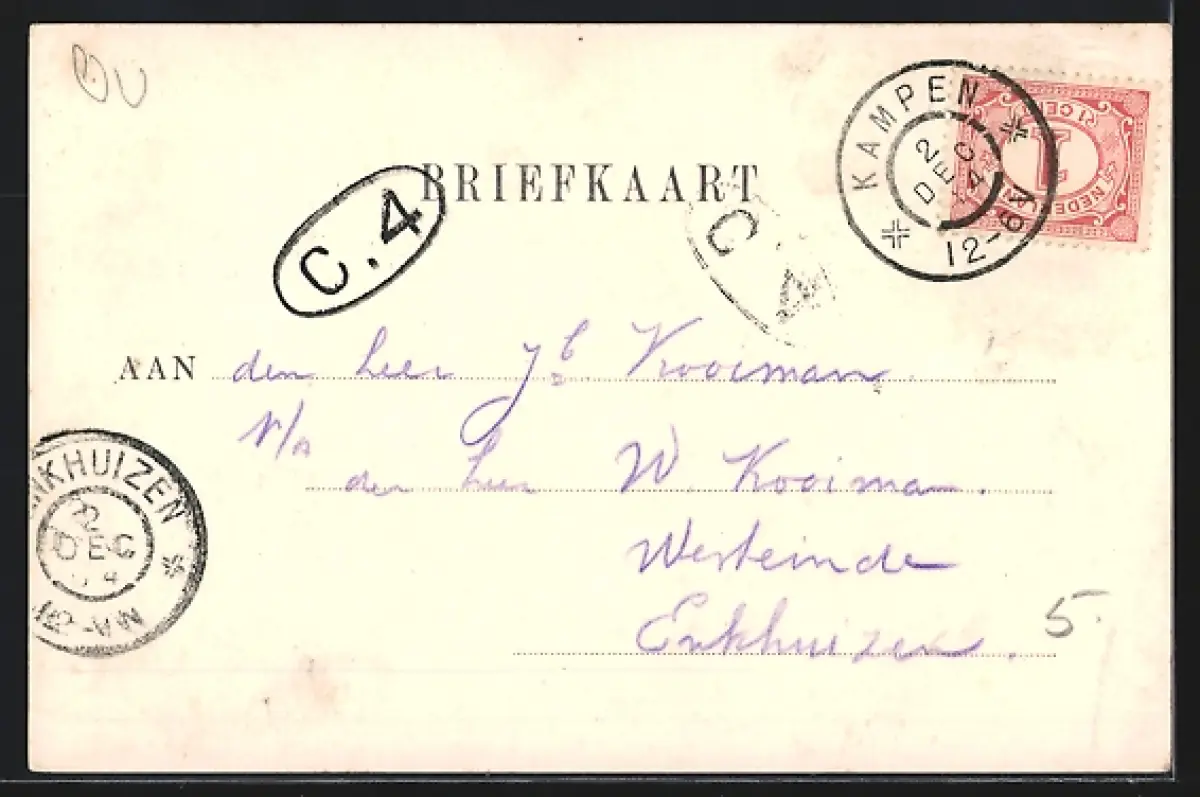 BRIEFKAART
KAMPEN
2
DEC
04
12-6N
1
C. 4
C. 4
AAN den heer Jb. Kooiman
p/a
den heer W. Kooiman.
Westeinde
Enkhuizen.
5.
NKHUIZEN
2
DEC
12-